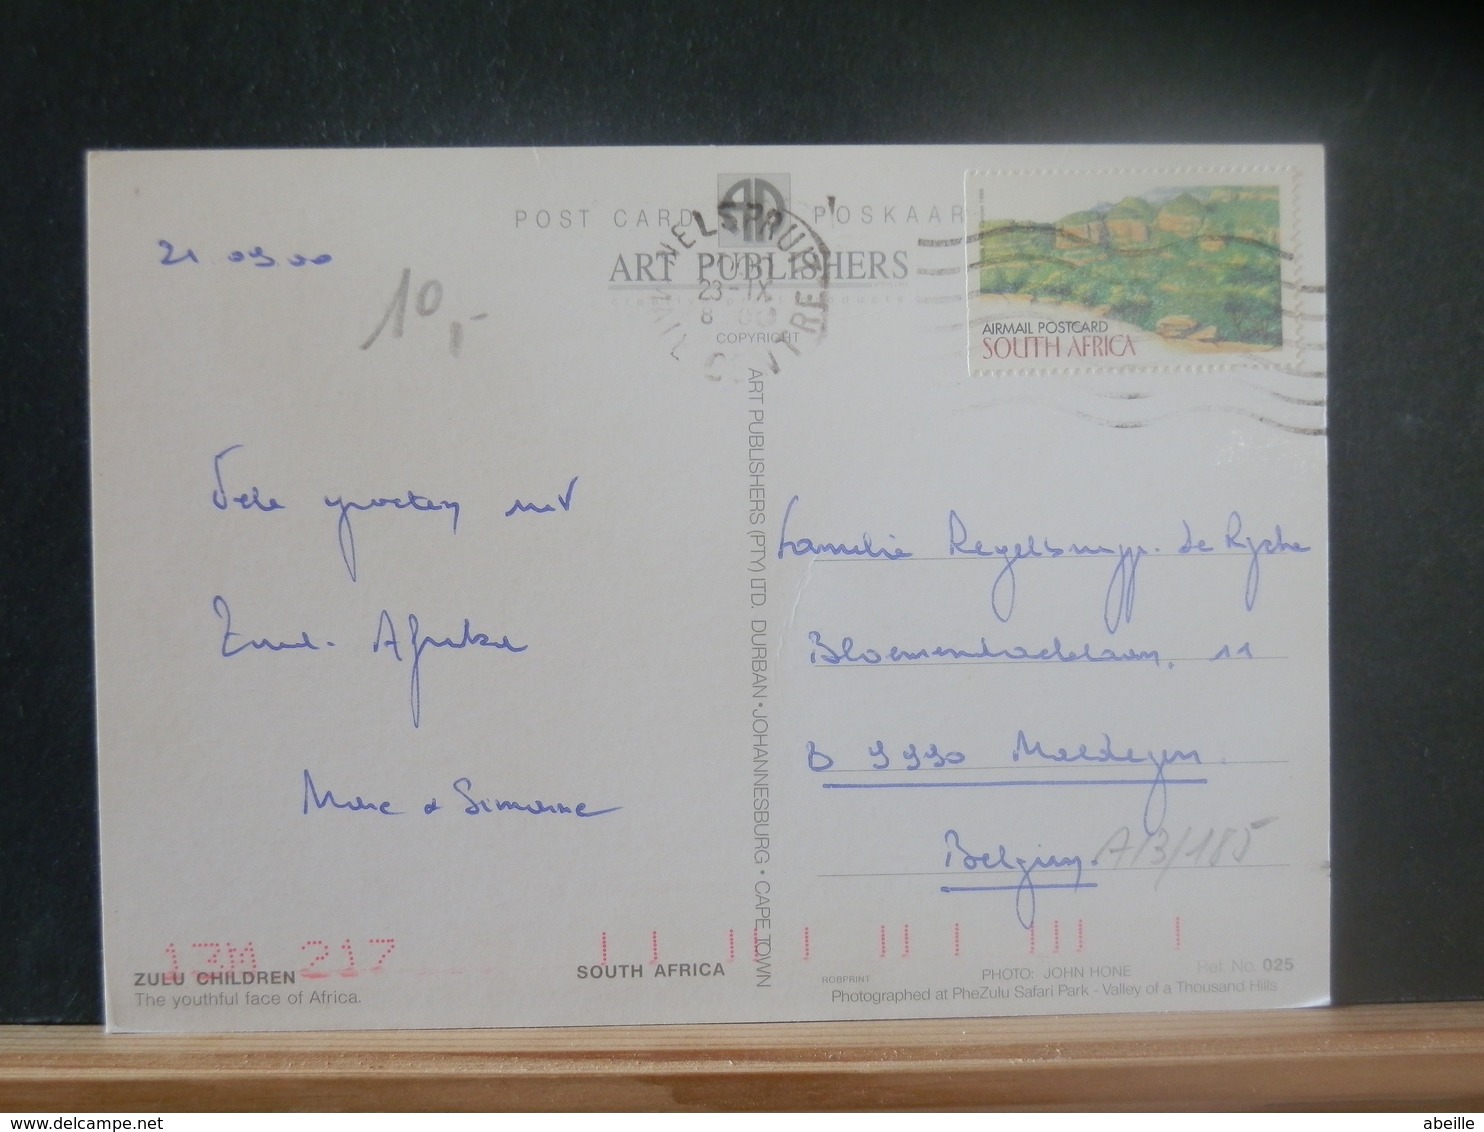 POST CARD POSKAAR
ART PUBLISHERS
COPYRIGHT
NELSPRUIT
23 -IX
MAIL CENTRE
AIRMAIL POSTCARD
SOUTH AFRICA
21 09 00
10,-
Vele groeten uit
Zuid-Afrika
Marc & Simonne
ART PUBLISHERS (PTY) LTD. DURBAN • JOHANNESBURG • CAPE TOWN
Familie Regelbrugge. De Rycke
Bloemendaelelaan, 11
B 9990 Maldegem
Belgium.
A13/185
13M 217
ZULU CHILDREN
The youthful face of Africa.
SOUTH AFRICA
ROBPRINT
PHOTO: JOHN HONE
Ref. No. 025
Photographed at PheZulu Safari Park - Valley of a Thousand Hills
abeille